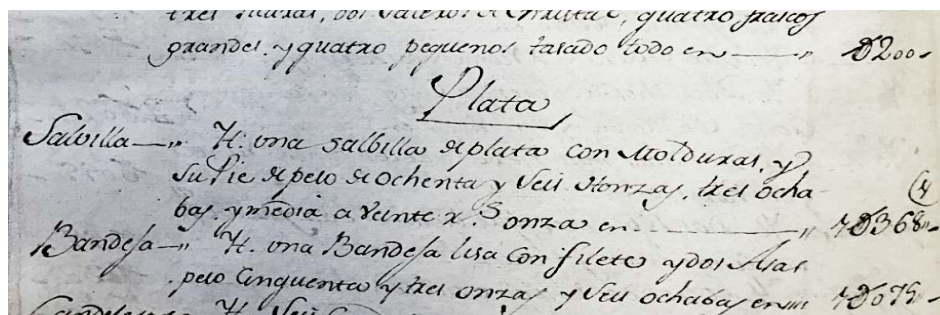 tres dos Saleros de Christal, quatro frascos
grandes, y quatro pequenos tasado todo en — " D200-
Plata
Salvilla —" It: una salbilla de plata con Molduras, y
su Pie de peso de ochenta y seis Honzas, tres ocha-
bas, y media a veinte r.s onza en — " 1D368"-
Bandeja —" It: una Bandeja lisa con filete y dos Asas
peso cinquenta y tres onzas y seis ochabas en 1D075-
It: Seis